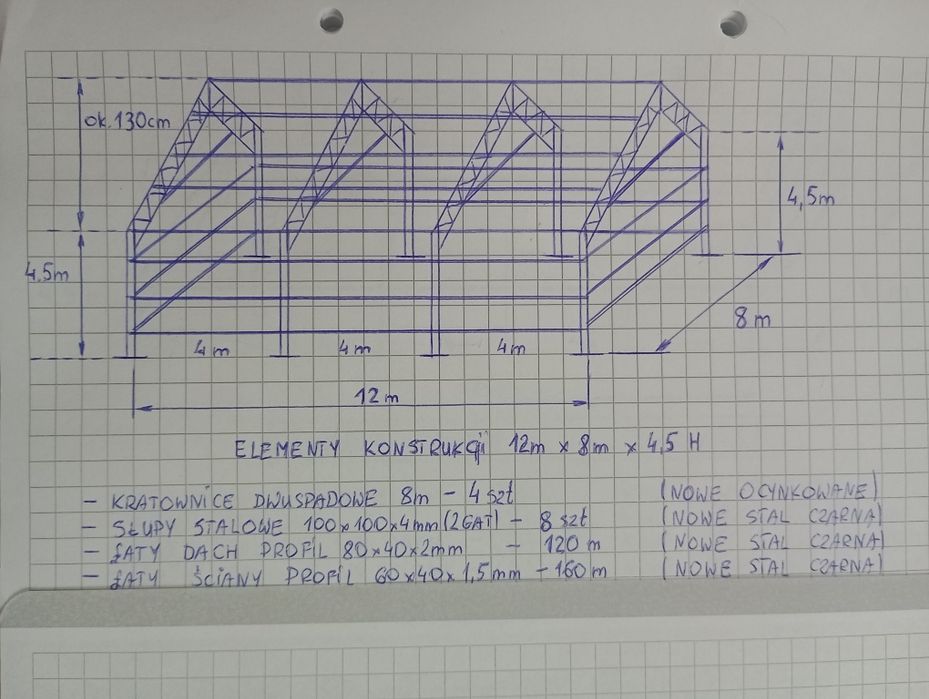 ok. 130cm
4,5m
4.5m
8m
4m 4m 4m
12m
ELEMENTY KONSTRUKCJI 12m x 8m x 4,5 H
- KRATOWNICE DWUSPADOWE 8m - 4 szt (NOWE OCYNKOWANE)
- SŁUPY STALOWE 100x100x4mm (2GAT) - 8 szt (NOWE STAL CZARNA)
- ŁATY DACH PROFIL 80x40x2mm - 120 m (NOWE STAL CZARNA)
- ŁATY ŚCIANY PROFIL 60x40x1,5mm - 160 m (NOWE STAL CZARNA)